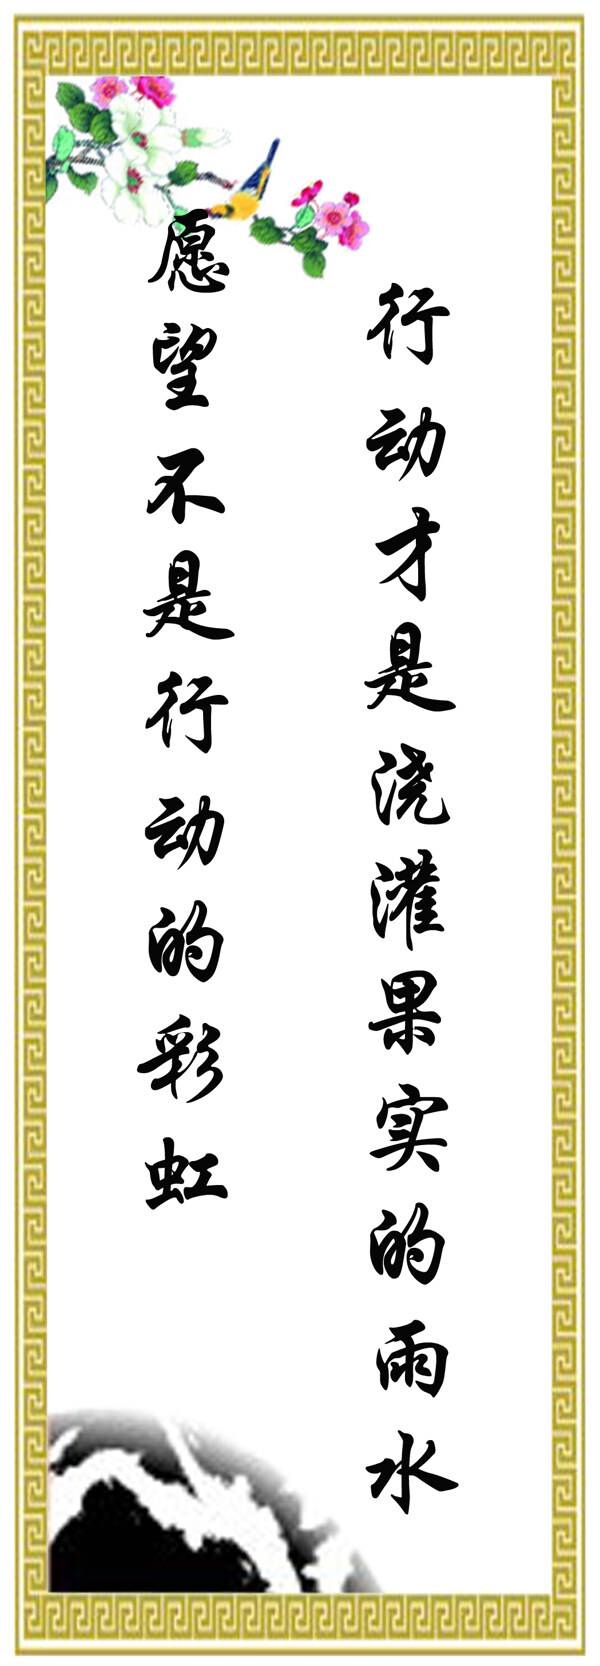 愿望不是行动的彩虹
行动才是浇灌果实的雨水